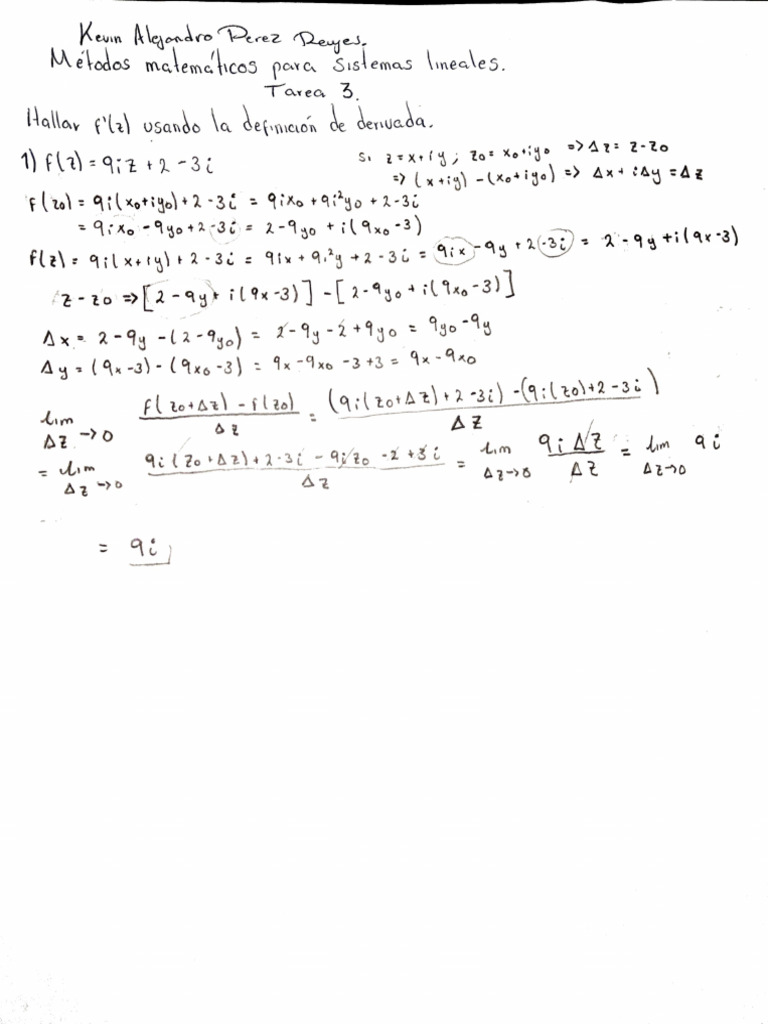 Kevin Alejandro Perez Reyes.
Métodos matemáticos para sistemas lineales.
Tarea 3.
Hallar f'(z) usando la definición de derivada.
1) f(z) = 9iz + 2 - 3i
Si z = x + iy ; z0 = x0 + iy0 => Δz = z - z0
=> (x + iy) - (x0 + iy0) => Δx + iΔy = Δz
f(z0) = 9i(x0 + iy0) + 2 - 3i = 9ix0 + 9i²y0 + 2 - 3i
= 9ix0 - 9y0 + 2 - 3i = 2 - 9y0 + i(9x0 - 3)
f(z) = 9i(x + iy) + 2 - 3i = 9ix + 9i²y + 2 - 3i = 9ix - 9y + 2 - 3i = 2 - 9y + i(9x - 3)
z - z0 => [2 - 9y + i(9x - 3)] - [2 - 9y0 + i(9x0 - 3)]
Δx = 2 - 9y - (2 - 9y0) = 2 - 9y - 2 + 9y0 = 9y0 - 9y
Δy = (9x - 3) - (9x0 - 3) = 9x - 9x0 - 3 + 3 = 9x - 9x0
lim Δz → 0 f(z0 + Δz) - f(z0) / Δz = (9i(z0 + Δz) + 2 - 3i) - (9i(z0) + 2 - 3i) / Δz
= lim Δz → 0 9i(z0 + Δz) + 2 - 3i - 9iz0 - 2 + 3i / Δz = lim Δz → 0 9iΔz / Δz = lim Δz → 0 9i
= 9i